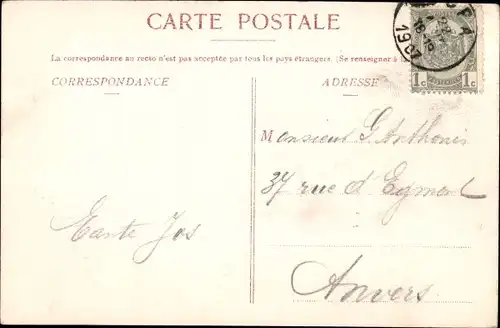 CARTE POSTALE
La correspondance au recto n'est pas acceptée par tous les pays étrangers. (Se renseigner à la
CORRESPONDANCE
ADRESSE
1c 1c
Monsieur G. Anthonis
37 rue d'Egmont
Tante Jos
Anvers